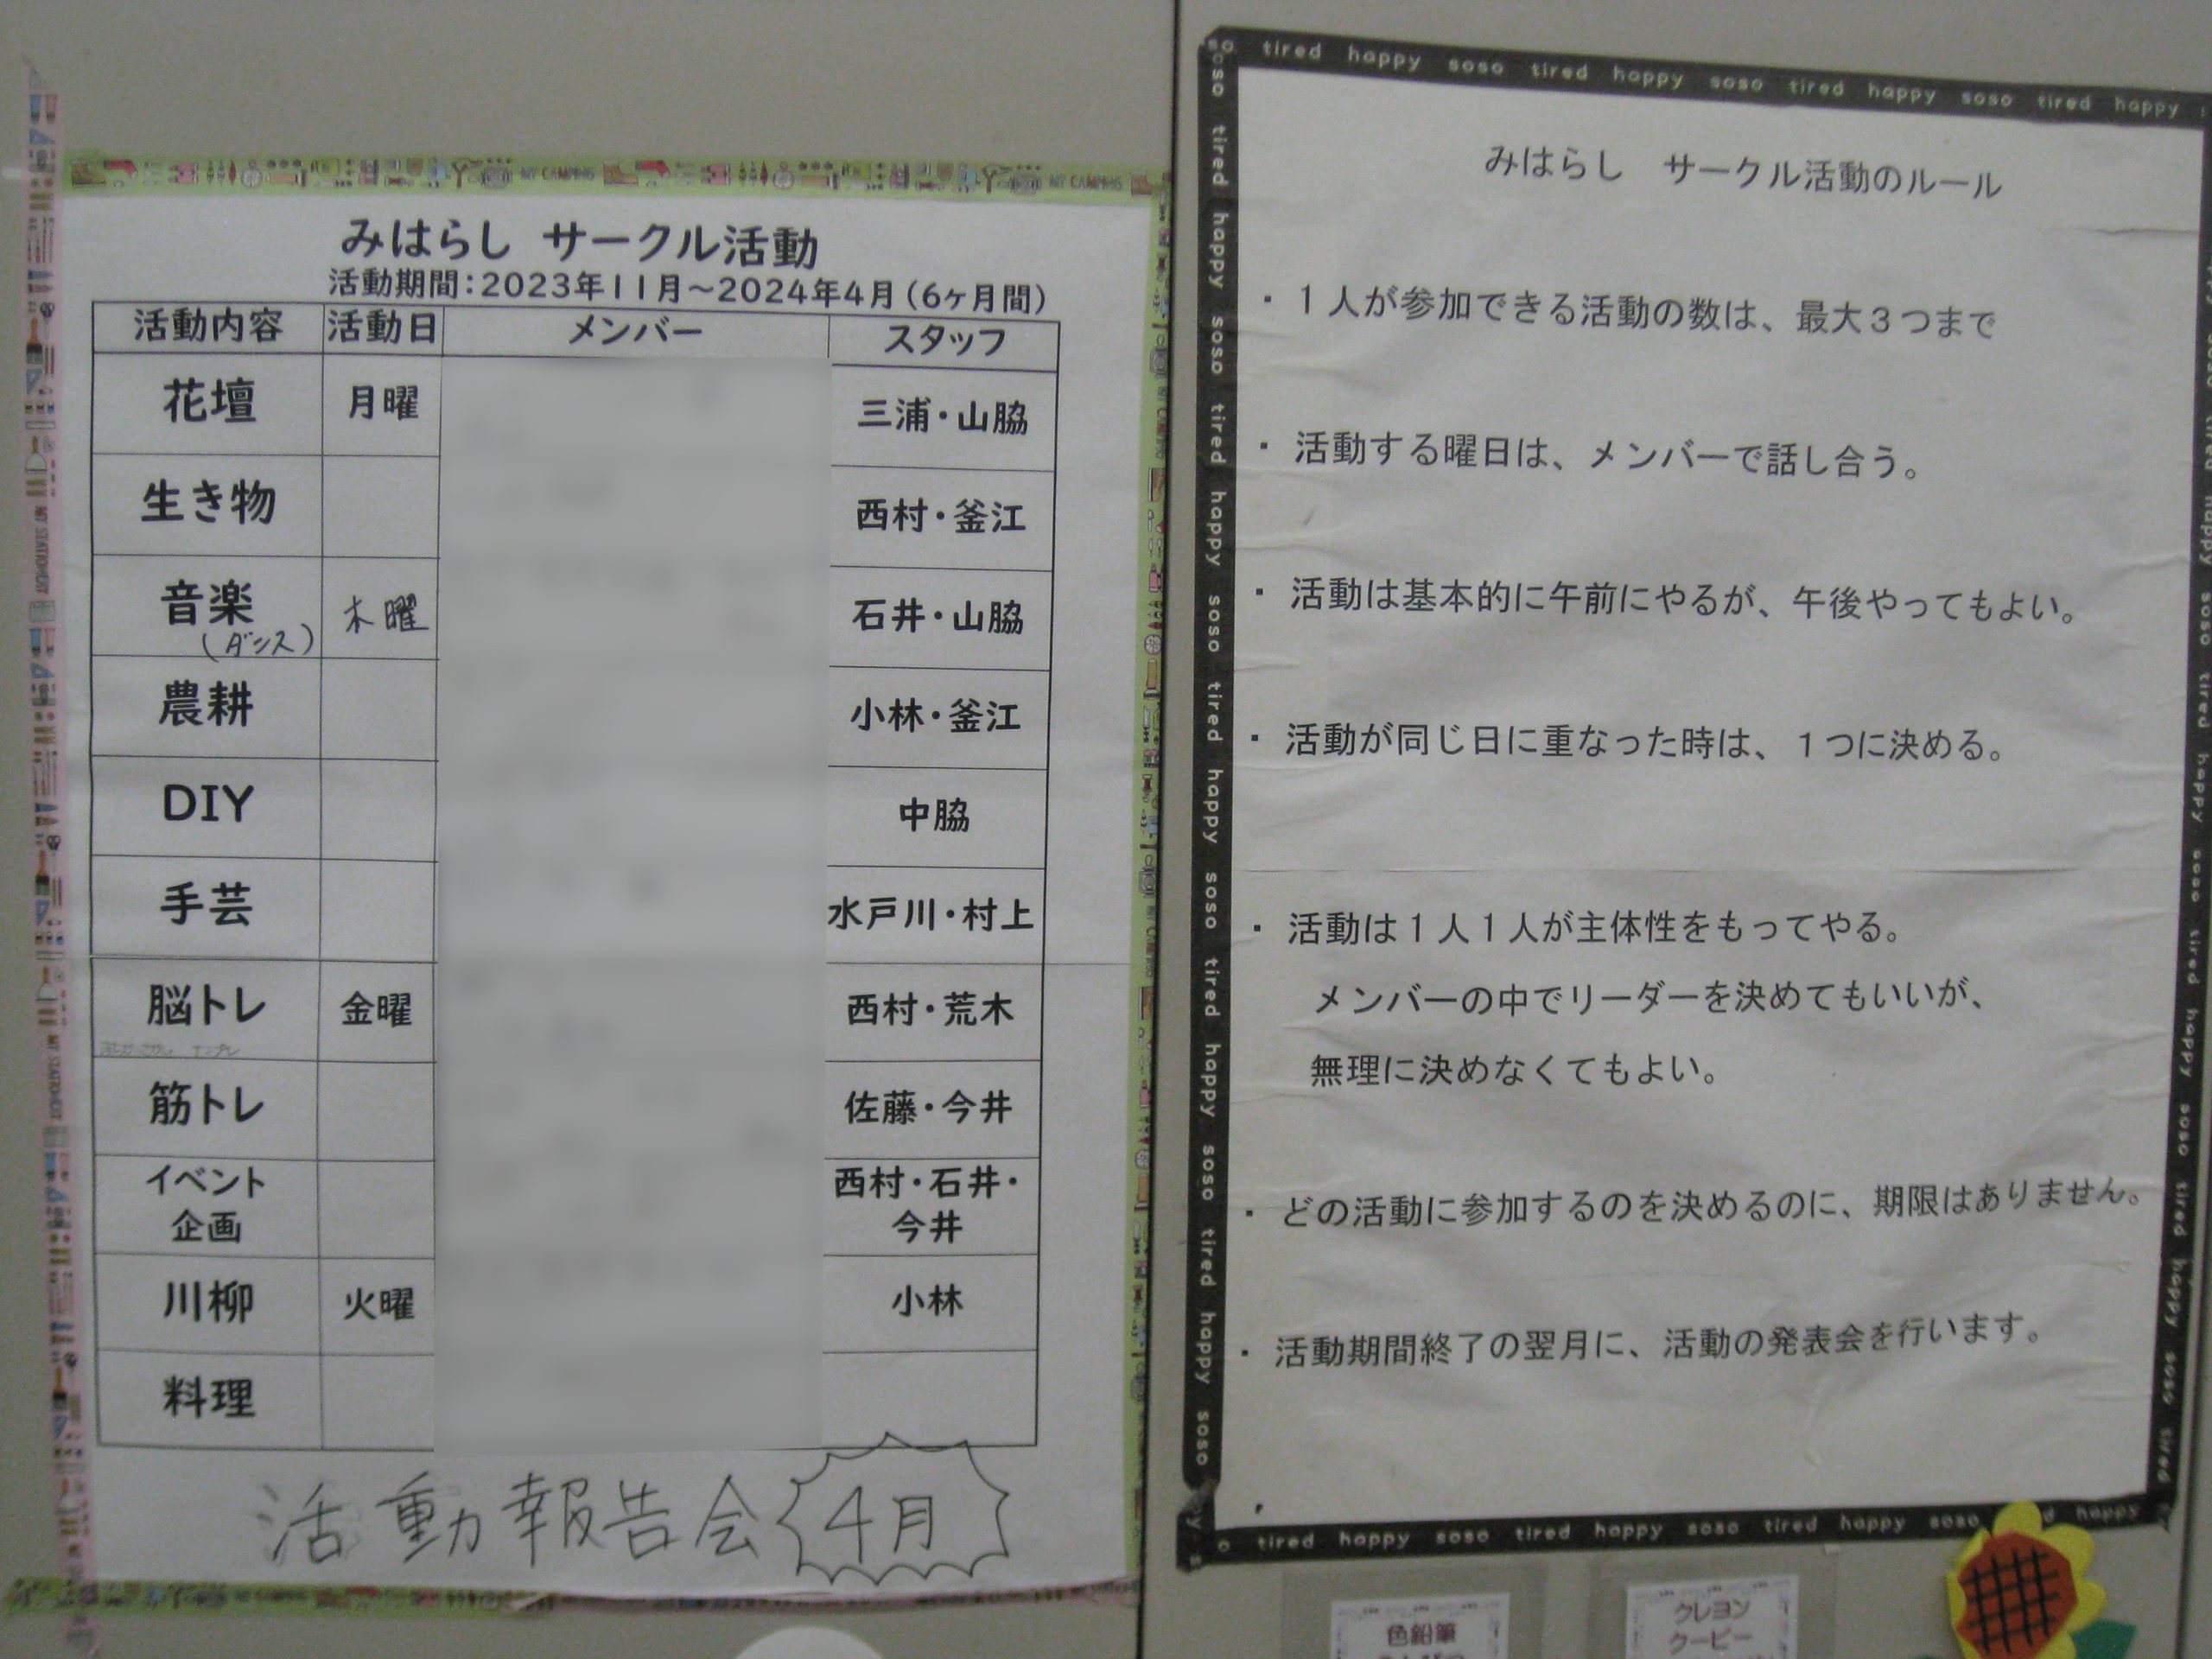 みはらし サークル活動
活動期間：2023年11月～2024年4月（6ヶ月間）
活動内容 活動日 メンバー スタッフ
花壇 月曜 三浦・山脇
生き物 西村・釜江
音楽 木曜 石井・山脇
（ダンス）
農耕 小林・釜江
DIY 中脇
手芸 水戸川・村上
脳トレ 金曜 西村・荒木
筋トレ 佐藤・今井
イベント 西村・石井・
企画 今井
川柳 火曜 小林
料理
活動報告会 4月
so tired happy soso tired happy soso tired happy soso tired happy
みはらし サークル活動のルール
・１人が参加できる活動の数は、最大３つまで
・活動する曜日は、メンバーで話し合う。
・活動は基本的に午前にやるが、午後やってもよい。
・活動が同じ日に重なった時は、１つに決める。
・活動は１人１人が主体性をもってやる。
メンバーの中でリーダーを決めてもいいが、
無理に決めなくてもよい。
・どの活動に参加するのを決めるのに、期限はありません。
・活動期間終了の翌月に、活動の発表会を行います。
tired happy soso tired happy soso tired happy soso happy
色鉛筆
クレヨン
クーピー